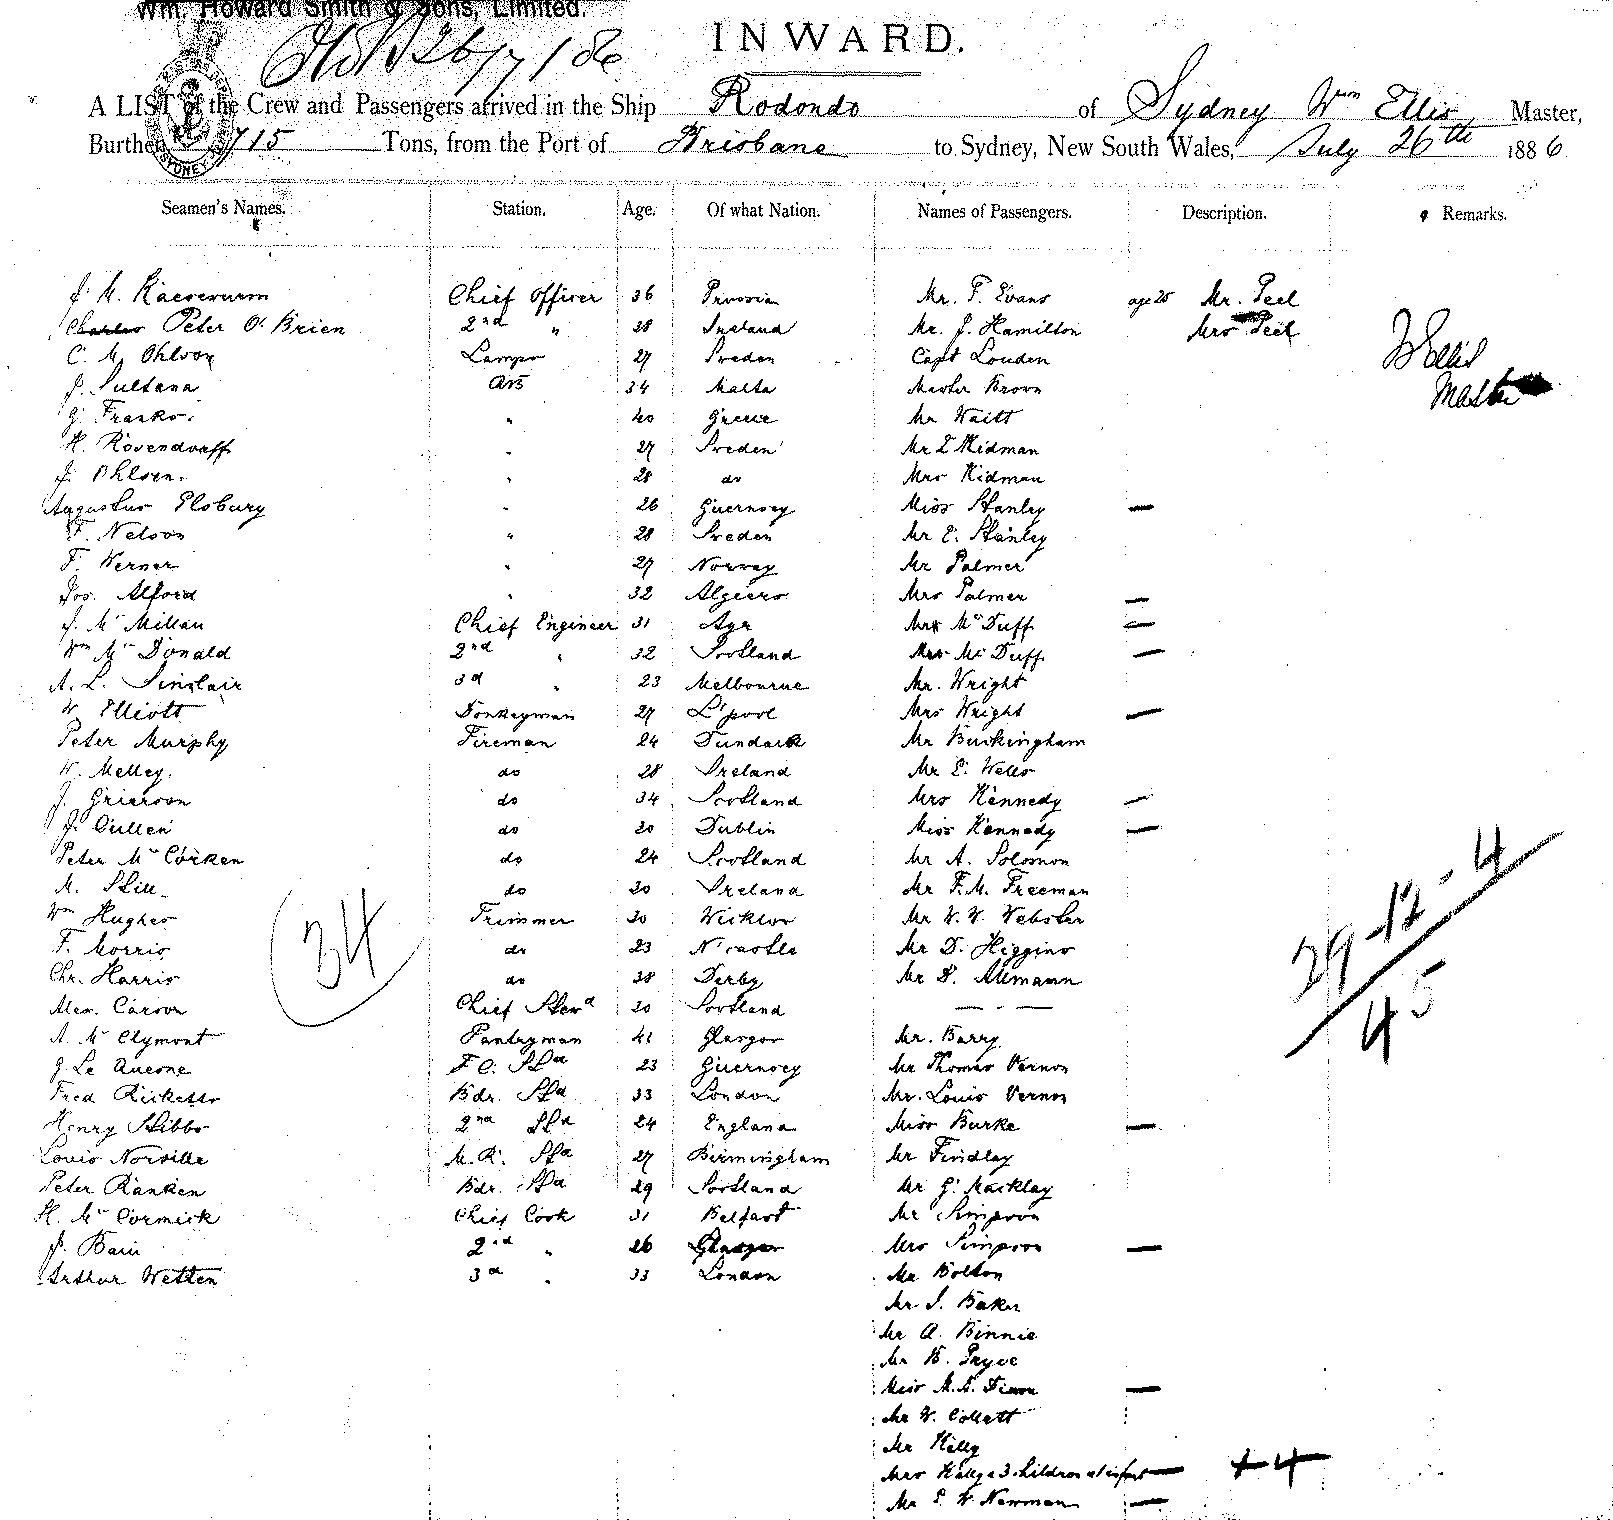 Wm. Howard Smith & Sons, Limited.
26/7/86
INWARD.
A LIST of the Crew and Passengers arrived in the Ship Rodondo of Sydney Wm Ellis Master,
Burthen 715 Tons, from the Port of Brisbane to Sydney, New South Wales, July 26th 1886
Seamen's Names. Station. Age. Of what Nation. Names of Passengers. Description. Remarks.
J. M. Kaesewurm Chief Officer 36 Prussia Mr. F. Evans age 25 Mr. Peel
Charles Peter O'Brien 2nd " 38 Ireland Mr. J. Hamilton Mrs Peel
C. M. Ohlson Lamps 27 Sweden Capt Louden W Ellis
J. Sultana AB 34 Malta Master Brown Master
G. Franko. " 40 Greece Mr Waitt
H. Rosendorff " 27 Sweden Mr Kidman
J. Ohlsen. " 28 do Mrs Kidman
Augustus Elsbury " 26 Guernsey Miss Stanley —
F. Nelson " 28 Sweden Mr E. Stanley
F. Werner " 27 Norway Mr Palmer
Jos. Alford " 32 Algiers Mrs Palmer —
J. McMillan Chief Engineer 31 Ayr Mrs McDuff —
Wm McDonald 2nd " 32 Scotland Mrs McDuff —
A. L. Sinclair 3d " 23 Melbourne Mr. Wright
W. Elliott Donkeyman 27 L'pool Mrs Wright —
Peter Murphy Fireman 24 Dundalk Mr Buckingham
W. Melley. do 28 Ireland Mr E. Wells
J. Grierson do 34 Scotland Mrs Kennedy —
J. Cullen do 30 Dublin Miss Kennedy —
Peter McCorken do 24 Scotland Mr A. Solomon
M. Still do 30 Ireland Mr F. M. Freeman
Wm Hughes Trimmer 30 Wicklow Mr W. W. Webster
F. Morris do 23 N'castle Mr D. Higgins
Chr. Harris do 38 Derby Mr Altmann
34
Alex. Carson Chief Stewd 30 Scotland — - —
A. McClymont Pantryman 41 Glasgow Mr. Barry
G. Le Quesne F.C. Std 23 Guernsey Mr Thomas Vernon
Fred Ricketts Bdr. Std 33 London Mr. Louis Vernon
Henry Stibbs 2nd Std 24 England Miss Burke —
Louis Norville M.R. Std 27 Birmingham Mr Findlay
Peter Ranken Bdr. Std 29 Scotland Mr G. Macklay
H. McCormick Chief Cook 31 Belfast Mr Simpson
J. Bain 2nd " 26 Glasgow Mrs Simpson —
Arthur Wetten 3d " 33 London Mr Bolton
Mr J. Baker
Mr A. Binnie
Mr Pryce
Miss M. A. Dixon —
Mr W. Collett
Mr Kelly
Mrs Kelly & 3 children & infant — + 4
Mr E W Newman —
29-12-4
45